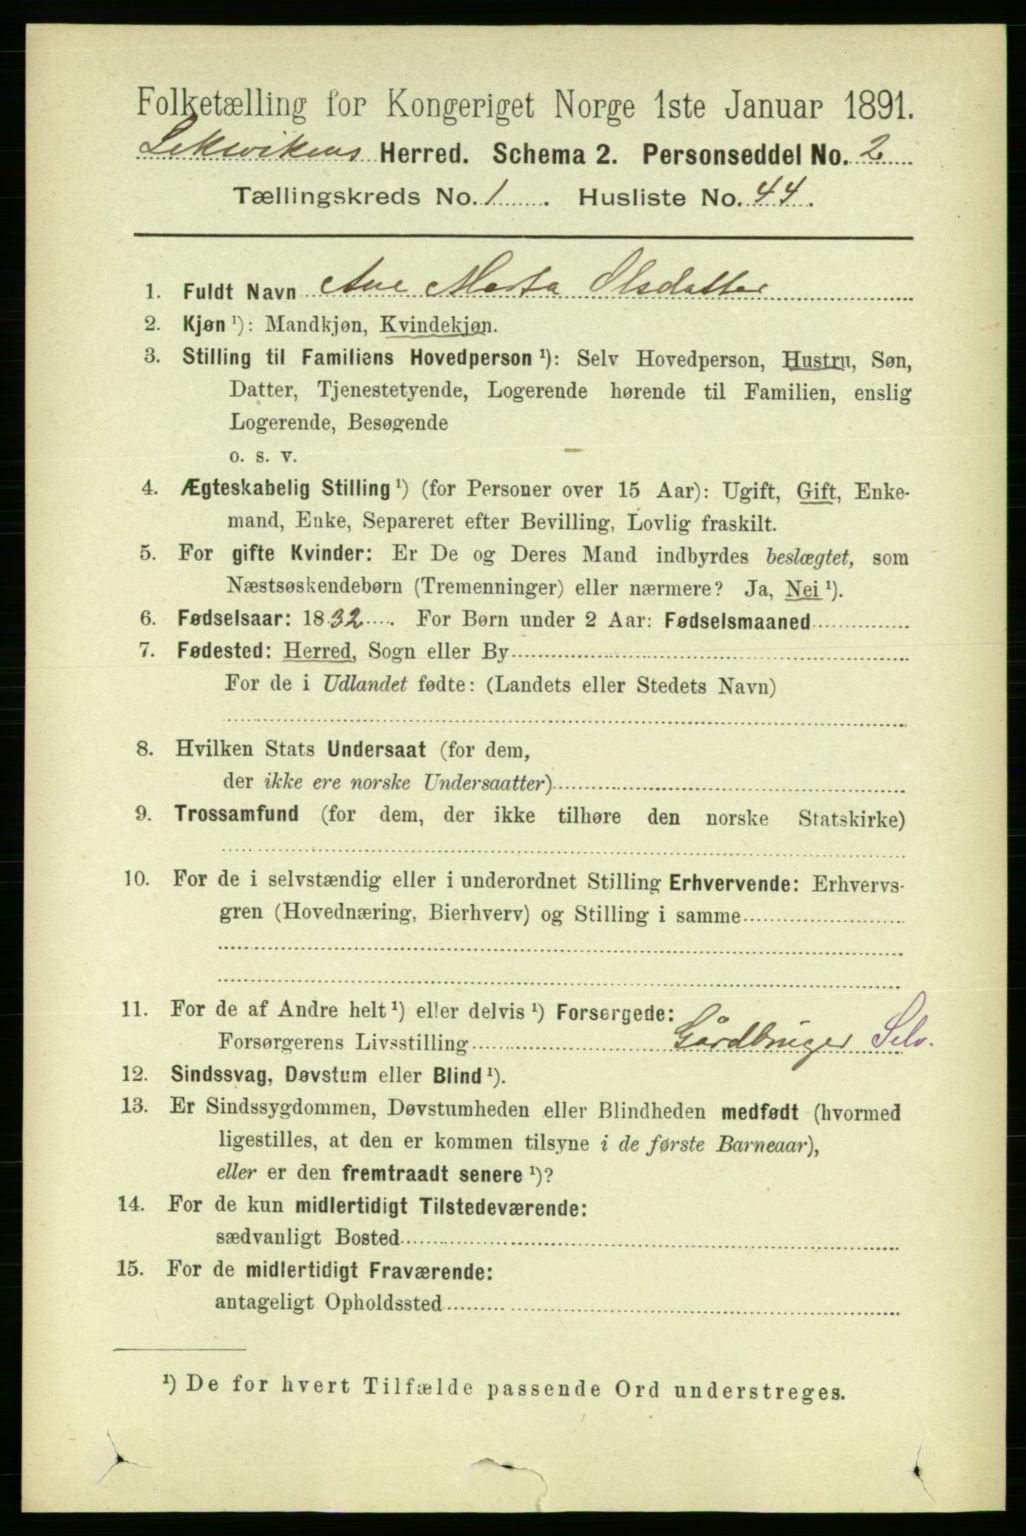 Folketælling for Kongeriget Norge 1ste Januar 1891.
Leksvikens Herred. Schema 2. Personseddel No. 2
Tællingskreds No. 1. Husliste No. 44.
1. Fuldt Navn Ane Marta Olsdatter
2. Kjøn ¹): Mandkjøn, Kvindekjøn.
3. Stilling til Familiens Hovedperson ¹): Selv Hovedperson, Hustru, Søn,
Datter, Tjenestetyende, Logerende hørende til Familien, enslig
Logerende, Besøgende
o. s. v.
4. Ægteskabelig Stilling ¹) (for Personer over 15 Aar): Ugift, Gift, Enke-
mand, Enke, Separeret efter Bevilling, Lovlig fraskilt.
5. For gifte Kvinder: Er De og Deres Mand indbyrdes beslægtet, som
Næstsøskendebørn (Tremenninger) eller nærmere? Ja, Nei ¹).
6. Fødselsaar: 1832. For Børn under 2 Aar: Fødselsmaaned
7. Fødested: Herred, Sogn eller By
For de i Udlandet fødte: (Landets eller Stedets Navn)
8. Hvilken Stats Undersaat (for dem,
der ikke ere norske Undersaatter)
9. Trossamfund (for dem, der ikke tilhøre den norske Statskirke)
10. For de i selvstændig eller i underordnet Stilling Erhvervende: Erhvervs-
gren (Hovednæring, Bierhverv) og Stilling i samme
11. For de af Andre helt ¹) eller delvis ¹) Forsørgede:
Forsørgerens Livsstilling Gårdbruger Selv.
12. Sindssvag, Døvstum eller Blind ¹).
13. Er Sindssygdommen, Døvstumheden eller Blindheden medfødt (hvormed
ligestilles, at den er kommen tilsyne i de første Barneaar),
eller er den fremtraadt senere ¹)?
14. For de kun midlertidigt Tilstedeværende:
sædvanligt Bosted
15. For de midlertidigt Fraværende:
antageligt Opholdssted
¹) De for hvert Tilfælde passende Ord understreges.